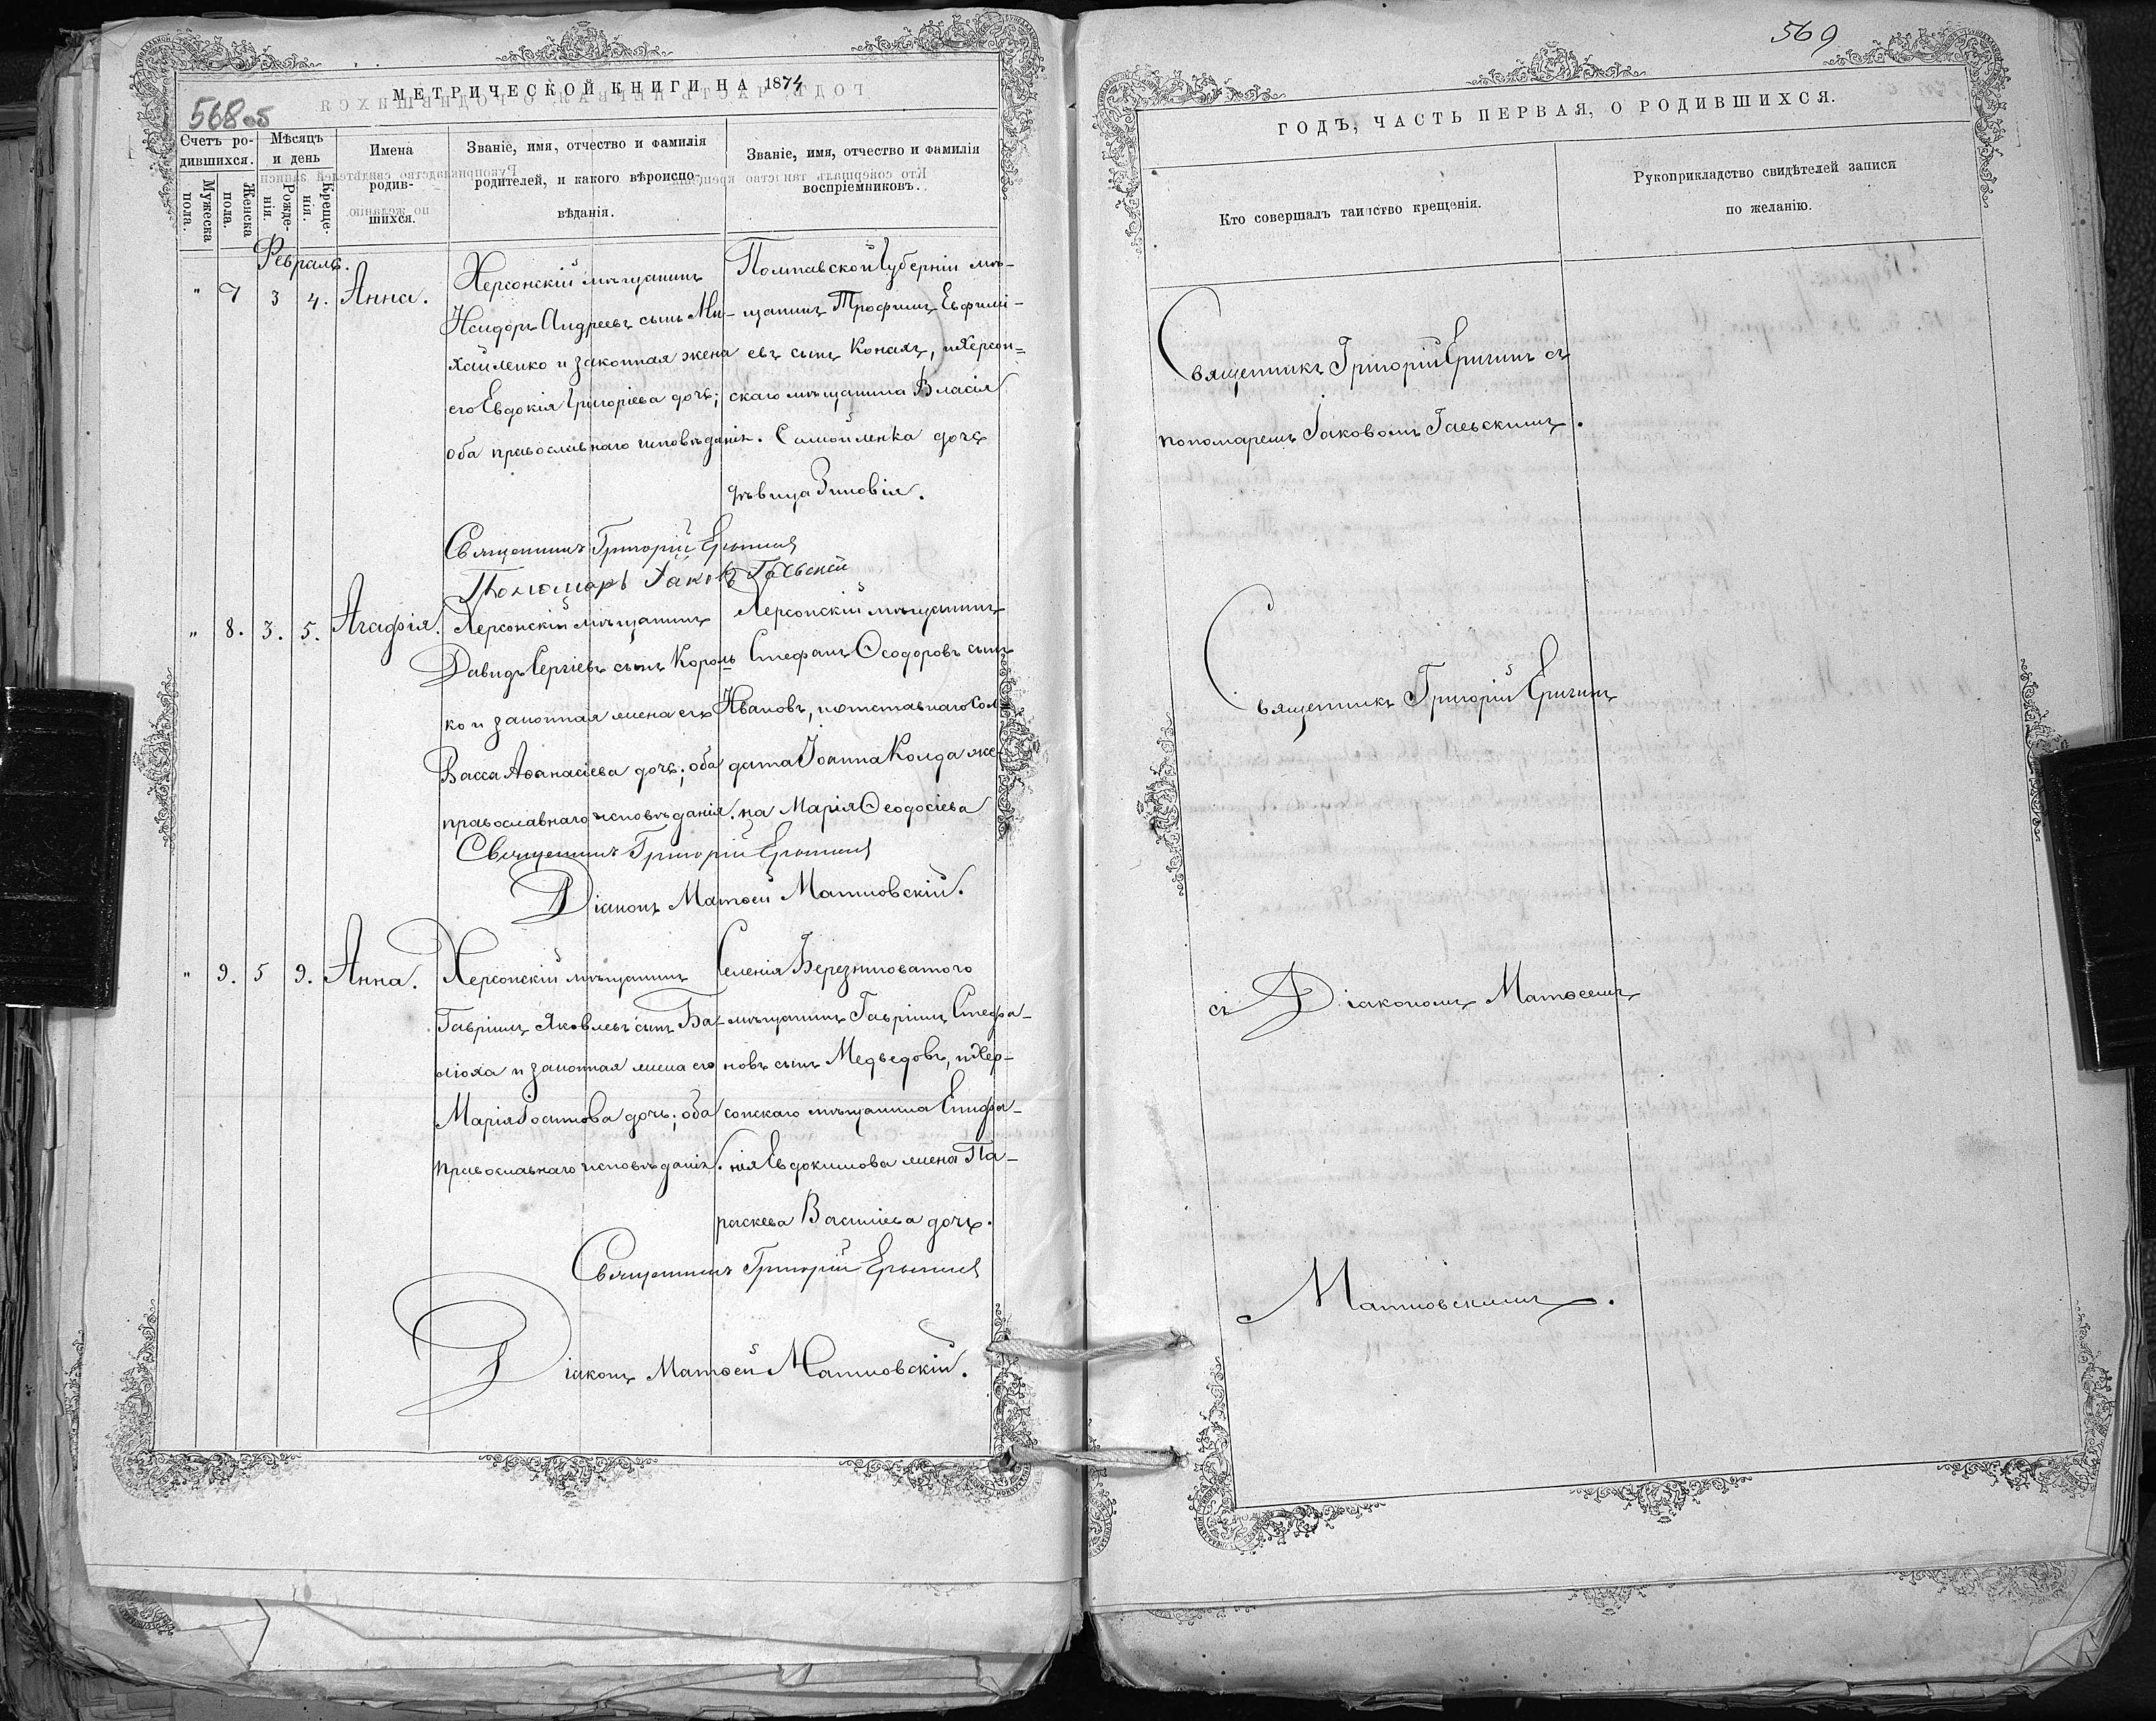 МЕТРИЧЕСКОЙ КНИГИ НА 1874
568 об
Счетъ ро-
дившихся.
Мужеска пола.
Женска пола.
Мѣсяцъ
и день
Рожде-
нія.
Креще-
нія.
Имена
родив-
шихся.
Званіе, имя, отчество и фамилія
родителей, и какого вѣроиспо-
вѣданія.
Званіе, имя, отчество и фамилія
воспріемниковъ.
Февраль.
" 7 3 4. Анна.
Херсонскій мѣщанинъ
Исидоръ Андреевъ сынъ Ми-
хайленко и законная жена
его Евдокія Григоріева дочь;
оба православнаго исповѣданія.
Полтавской Губерніи мѣ-
щанинъ Трофимъ Евфимі-
евъ сынъ Конахъ, и Херсон=
скаго мѣщанина Власія
Самойленка дочь
дѣвица Зиновія.
Священникъ Григорій Еригинъ
Пономарь Іаковъ Гаевскій
" 8. 3. 5. Агафія.
Херсонскій мѣщанинъ
Давидъ Сергіевъ сынъ Король
ко и законная жена его
Васса Аѳанасіева дочь; оба
православнаго исповѣданія.
Херсонскій мѣщанинъ
Стефанъ Ѳеодоровъ сынъ
Ивановъ, и отставнаго Сол
дата Іоанна Колда же-
на Марія Ѳеодосіева
Священникъ Григорій Еригинъ
Діаконъ Матѳей Матковскій.
" 9. 5 9. Анна.
Херсонскій мѣщанинъ
Гавріилъ Яковлевъ сынъ Ба-
люха и законная жена его
Марія Іосифова дочь; оба
православнаго исповѣданія.
Селенія Березниговатого
мѣщанинъ Гавріилъ Стефа-
новъ сынъ Медведовъ, и Хер-
сонскаго мѣщанина Епифа-
нія Евдокимова жена Па-
раскева Василіева дочь.
Священникъ Григорій Еригинъ
Діаконъ Матѳей Матковскій.
569
ГОДЪ, ЧАСТЬ ПЕРВАЯ, О РОДИВШИХСЯ.
Кто совершалъ таинство крещенія.
Рукоприкладство свидѣтелей записи
по желанію.
Священникъ Григорій Еригинъ съ
пономаремъ Іаковомъ Гаевскимъ.
Священникъ Григорій Еригинъ
съ Діакономъ Матѳеемъ
Матковскимъ.